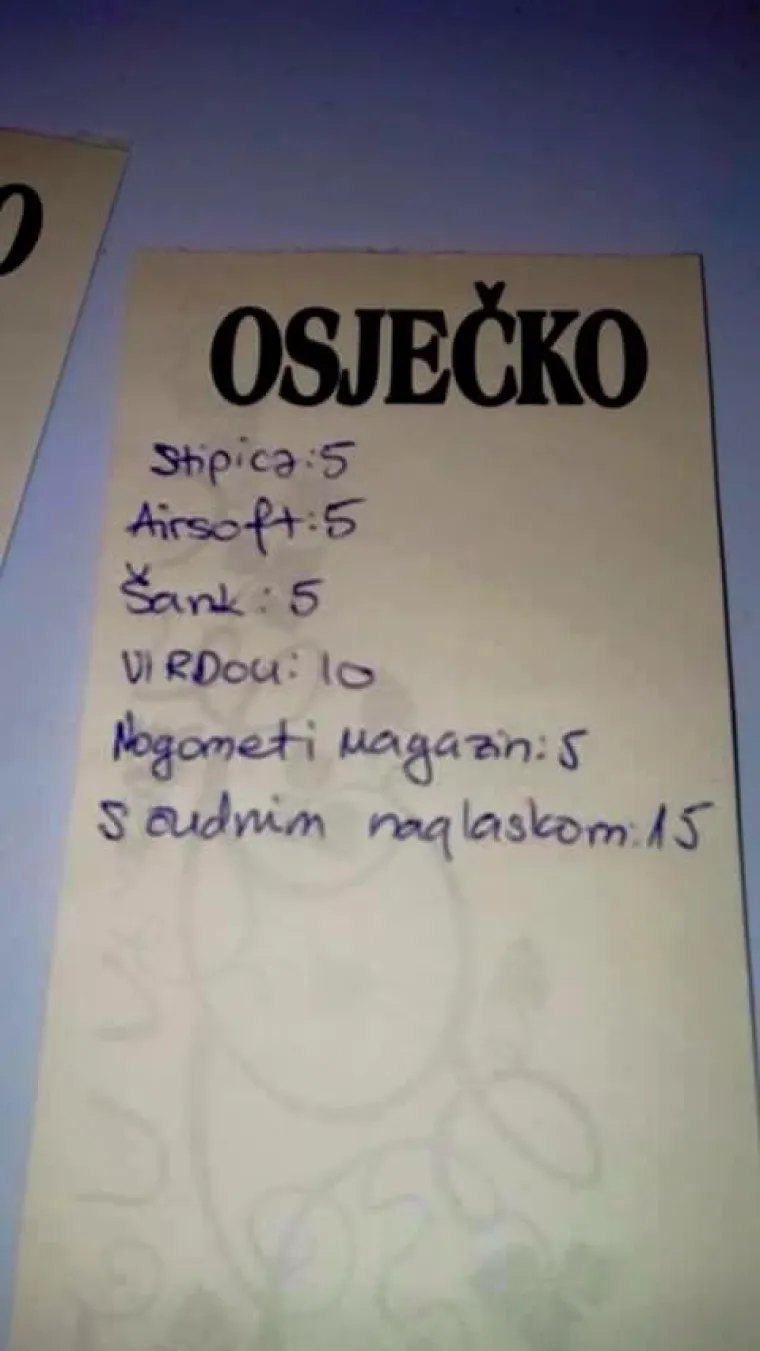 O
OSJEČKO
Stipica: 5
Airsoft: 5
Šank: 5
VIRDOU: 10
Nogometi Magazin: 5
S čudnim naglaskom: 15